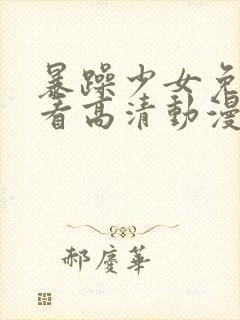 暴躁少女免
看高清動漫
郝慶華